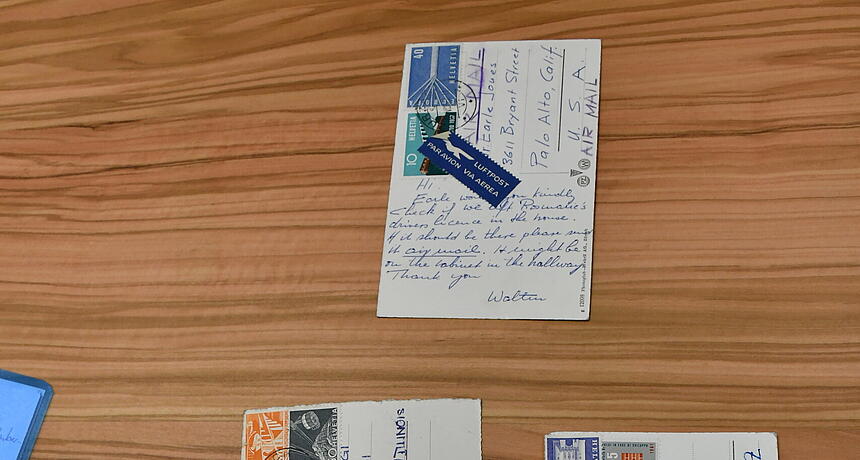 40
HELVETIA
EUROPA
10
HELVETIA
LUFTPOST
PAR AVION VIA AEREA
AIR MAIL
Earle Jones
3611 Bryant Street
Palo Alto, Calif.
U. S. A.
AIR MAIL
Hi
Earle would you kindly
check if we left Rosmarie's
drivers licence in the house.
If it should be there please send
it air mail. It might be
on the cabinet in the hallway
Thank you
Walter
HELVETIA
ILLINOIS